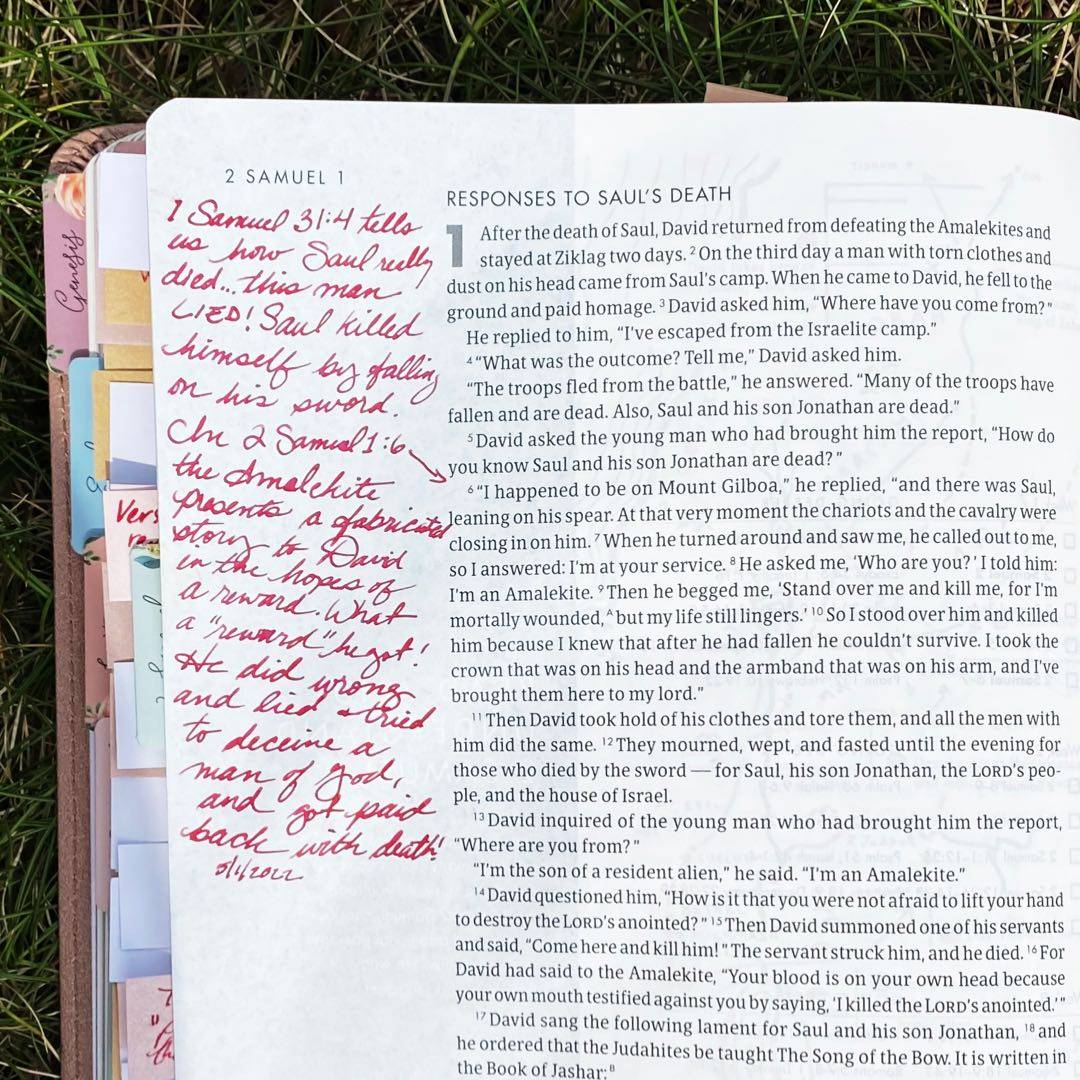 2 SAMUEL 1
1 Samuel 31:4 tells
us how Saul really
died... this man
LIED! Saul killed
himself by falling
on his sword.
In 2 Samuel 1:6
the Amalekite
presents a fabricated
story to David
in the hopes of
a reward. What
a "reward" he got!
He did wrong
and lied & tried
to deceive a
man of God,
and got paid
back with death!
5/1/2022
RESPONSES TO SAUL'S DEATH
1 After the death of Saul, David returned from defeating the Amalekites and
stayed at Ziklag two days. 2 On the third day a man with torn clothes and
dust on his head came from Saul's camp. When he came to David, he fell to the
ground and paid homage. 3 David asked him, "Where have you come from?"
He replied to him, "I've escaped from the Israelite camp."
4 "What was the outcome? Tell me," David asked him.
"The troops fled from the battle," he answered. "Many of the troops have
fallen and are dead. Also, Saul and his son Jonathan are dead."
5 David asked the young man who had brought him the report, "How do
you know Saul and his son Jonathan are dead?"
6 "I happened to be on Mount Gilboa," he replied, "and there was Saul,
leaning on his spear. At that very moment the chariots and the cavalry were
closing in on him. 7 When he turned around and saw me, he called out to me,
so I answered: I'm at your service. 8 He asked me, 'Who are you?' I told him:
I'm an Amalekite. 9 Then he begged me, 'Stand over me and kill me, for I'm
mortally wounded,A but my life still lingers.' 10 So I stood over him and killed
him because I knew that after he had fallen he couldn't survive. I took the
crown that was on his head and the armband that was on his arm, and I've
brought them here to my lord."
11 Then David took hold of his clothes and tore them, and all the men with
him did the same. 12 They mourned, wept, and fasted until the evening for
those who died by the sword — for Saul, his son Jonathan, the LORD's peo-
ple, and the house of Israel.
13 David inquired of the young man who had brought him the report,
"Where are you from?"
"I'm the son of a resident alien," he said. "I'm an Amalekite."
14 David questioned him, "How is it that you were not afraid to lift your hand
to destroy the LORD's anointed?" 15 Then David summoned one of his servants
and said, "Come here and kill him!" The servant struck him, and he died. 16 For
David had said to the Amalekite, "Your blood is on your own head because
your own mouth testified against you by saying, 'I killed the LORD's anointed.'"
17 David sang the following lament for Saul and his son Jonathan, 18 and
he ordered that the Judahites be taught The Song of the Bow. It is written in
the Book of Jashar:B
Genesis